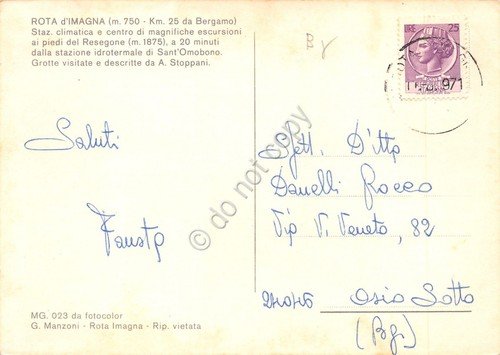 ROTA d'IMAGNA (m. 750 - Km. 25 da Bergamo)
Staz. climatica e centro di magnifiche escursioni
ai piedi del Resegone (m. 1875), a 20 minuti
dalla stazione idrotermale di Sant'Omobono.
Grotte visitate e descritte da A. Stoppani.
LIRE 25
971
Saluti
Fausta
Spett. Ditta
Danelli Rocco
Via V. Veneto, 82
24046 Osio Sotto
(Bg)
do not copy
MG. 023 da fotocolor
G. Manzoni - Rota Imagna - Rip. vietata